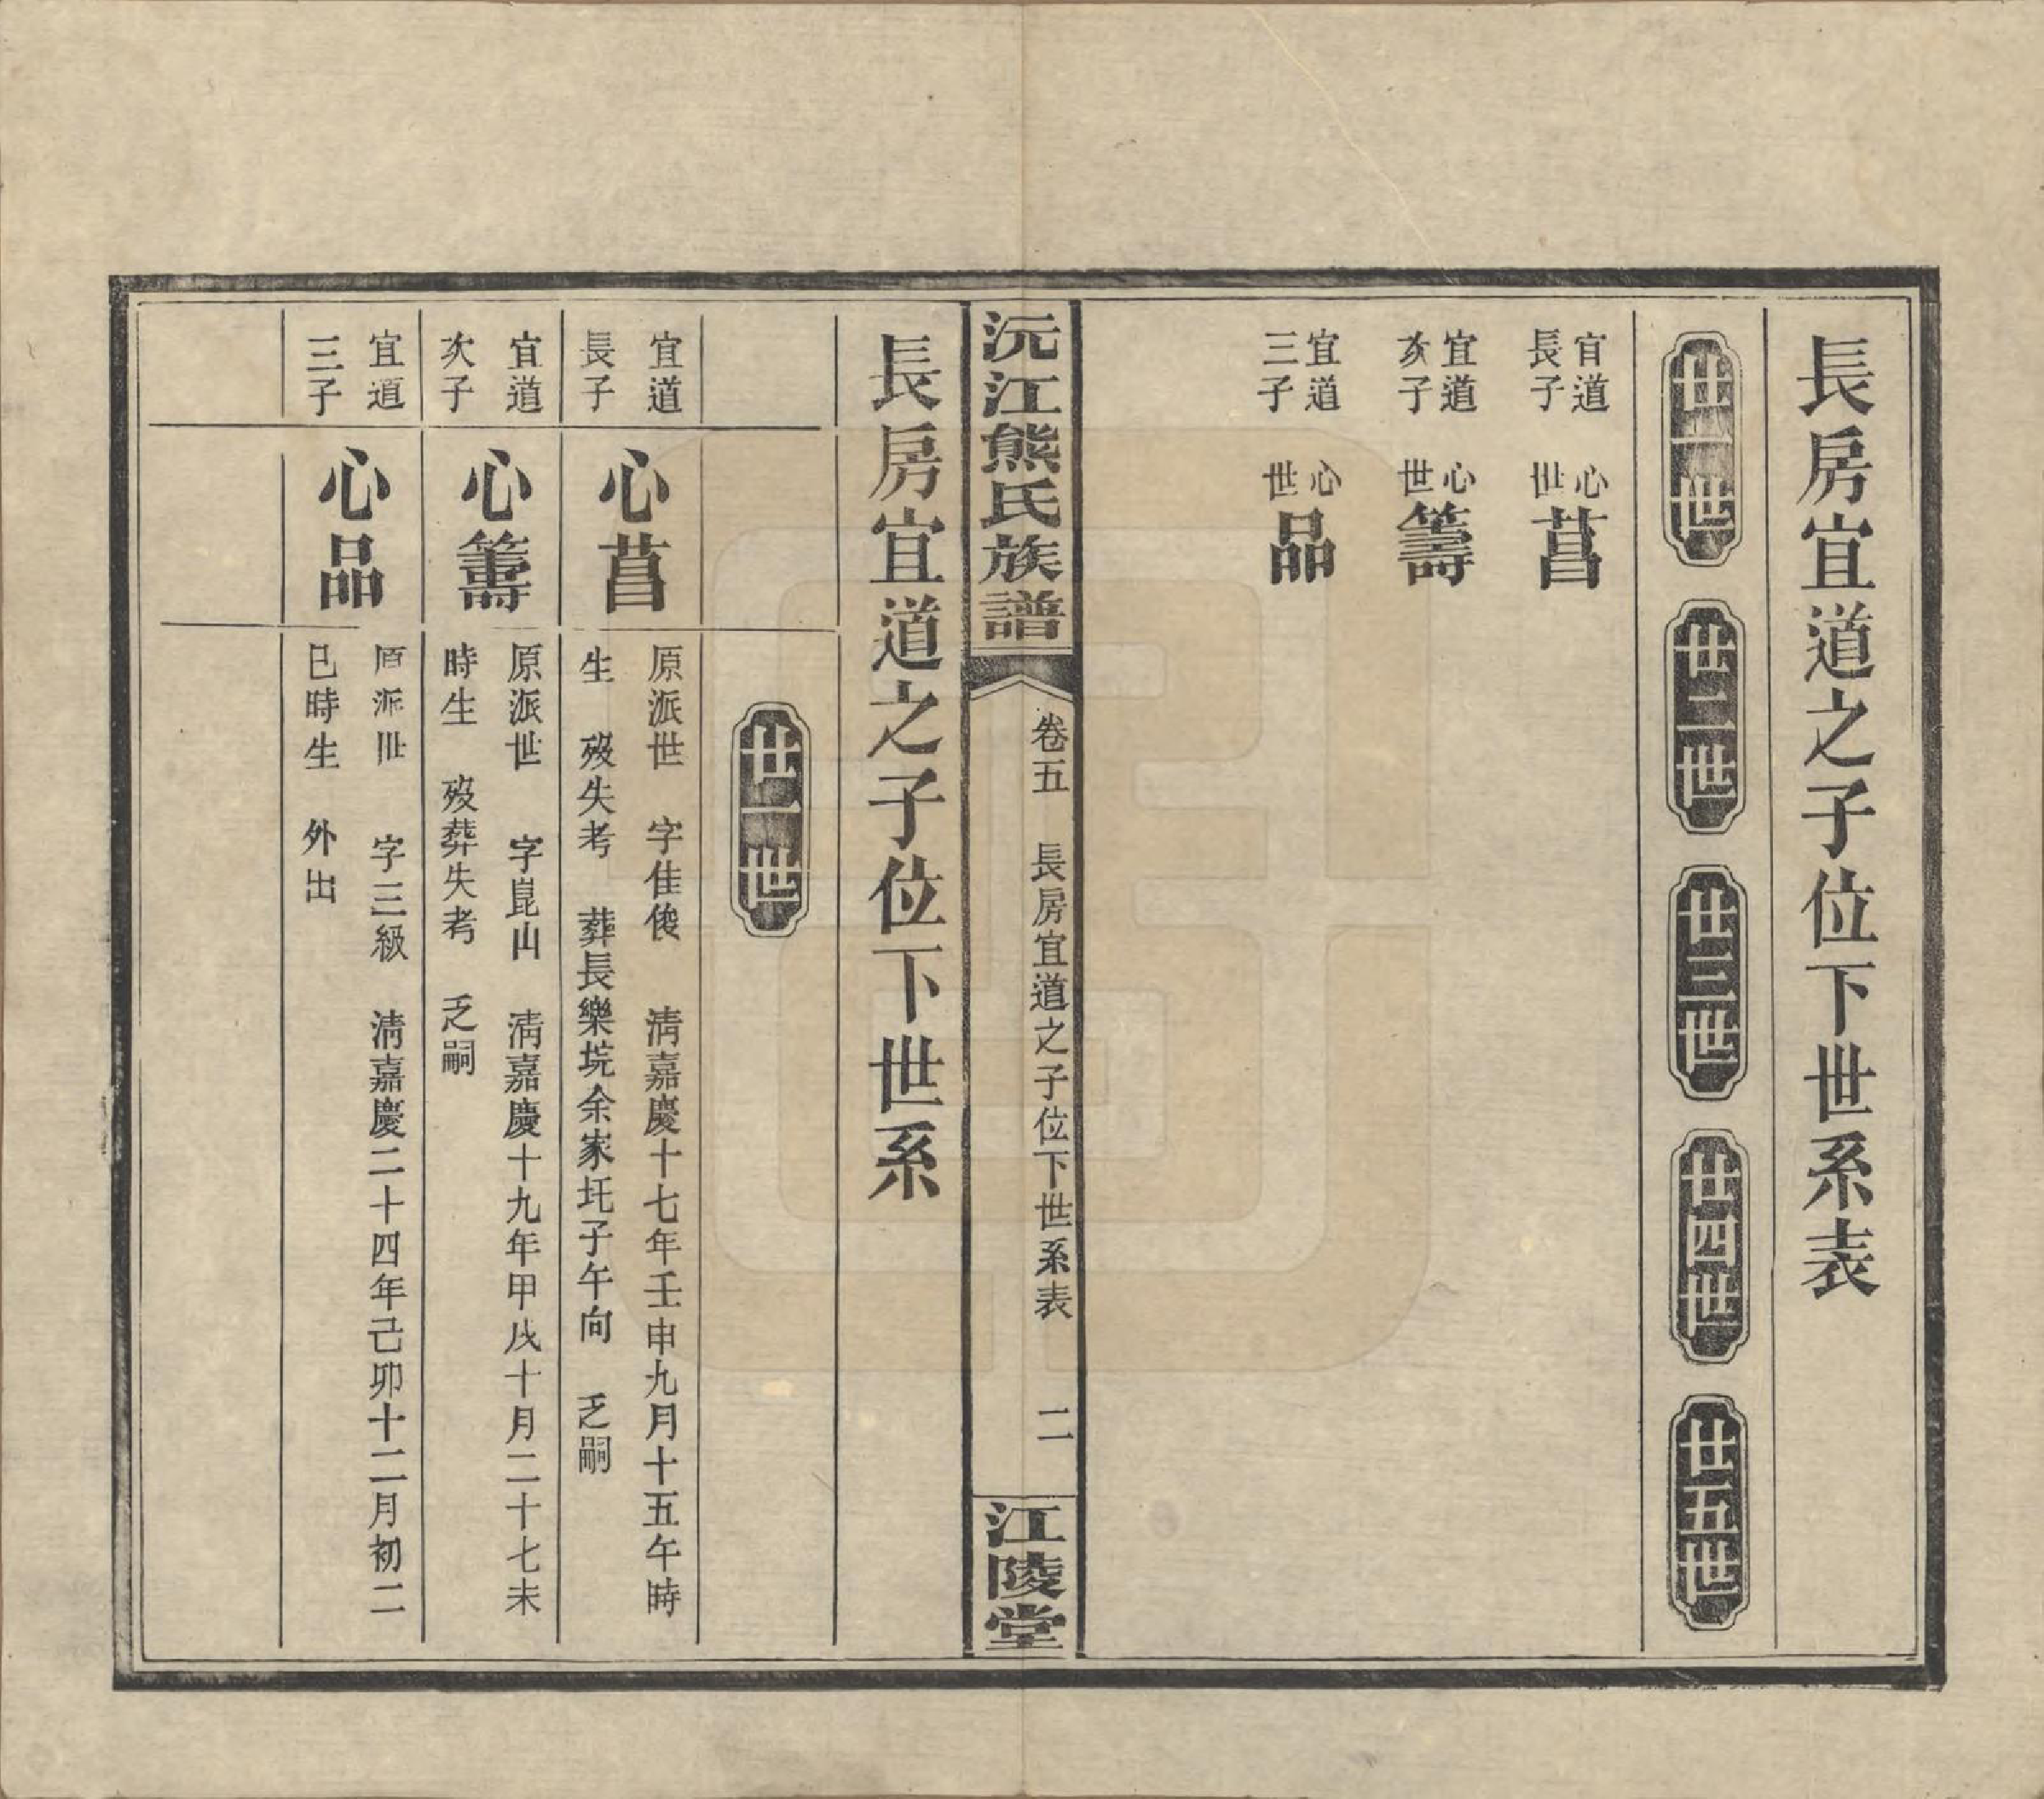 長房宜道之子位下世系表
廿一世
廿二世
廿三世
廿四世
廿五世
宜道
長子
心
世
菖
宜道
次子
心
世
籌
宜道
三子
心
世
品
沅江熊氏族譜
卷五 長房宜道之子位下世系表 二
江陵堂
長房宜道之子位下世系
廿一世
宜道
長子
心菖
原派世 字佳俊 清嘉慶十七年壬申九月十五午時
生 歿失考 葬長樂垸余家圫子午向 乏嗣
宜道
次子
心籌
原派世 字崑山 清嘉慶十九年甲戌十月二十七未
時生 歿葬失考 乏嗣
宜道
三子
心品
原派世 字三級 清嘉慶二十四年己卯十二月初二
巳時生 外出